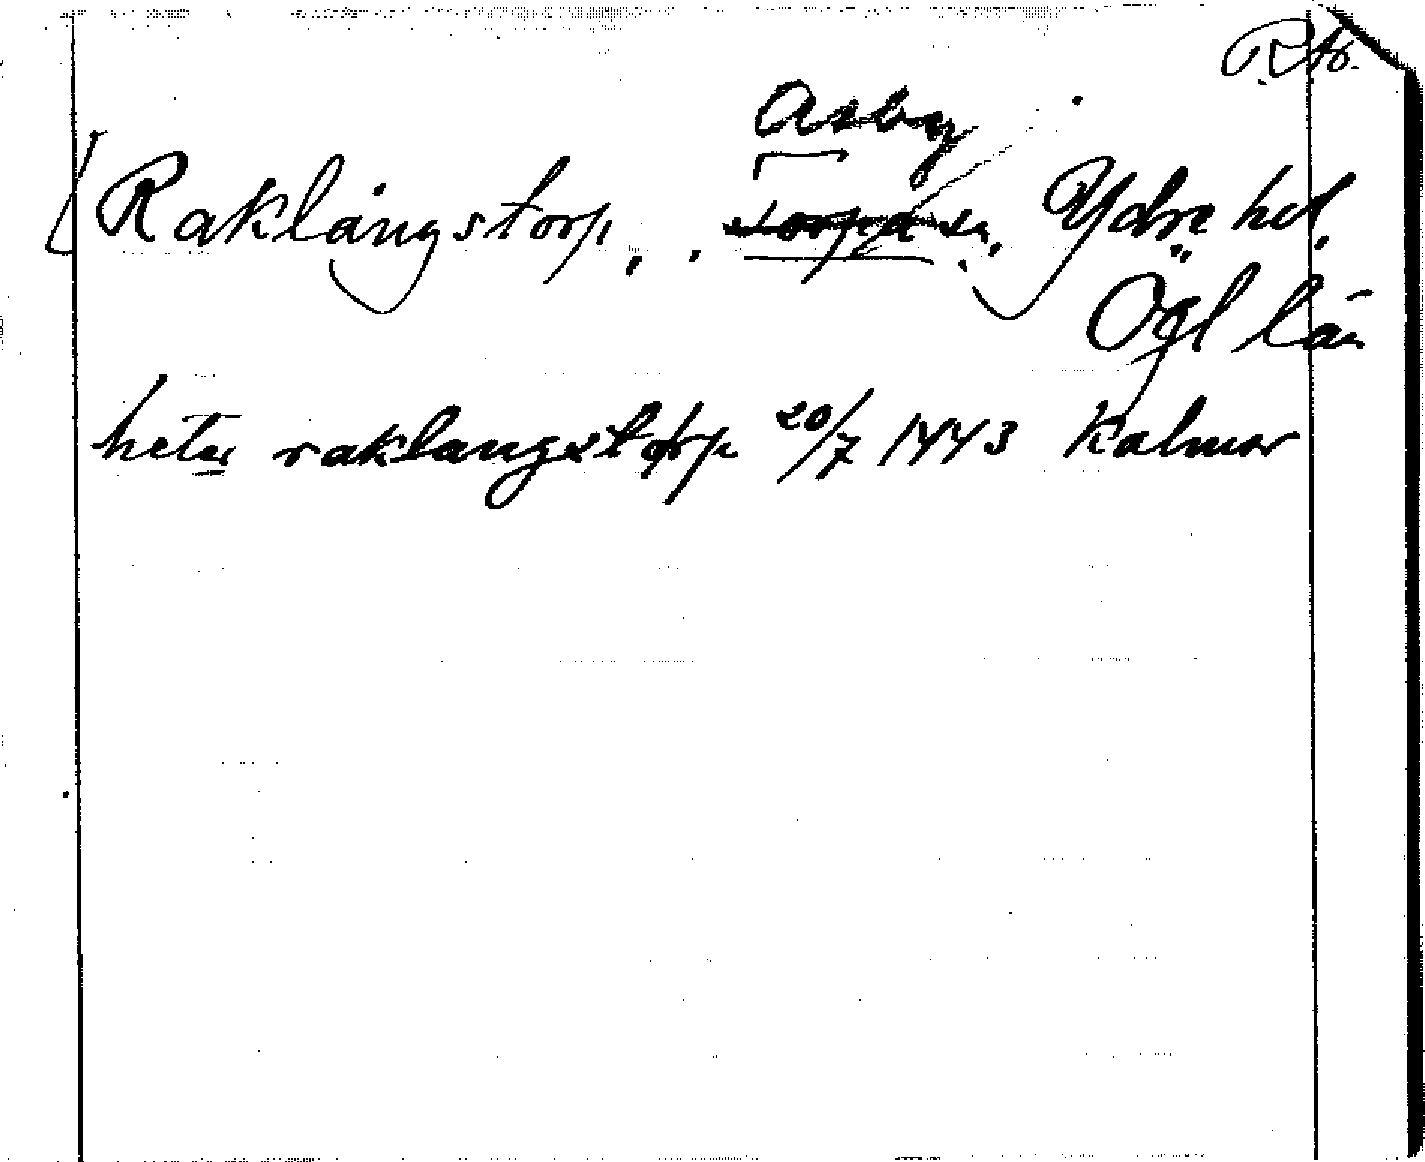 Asby
Raklångstorp, , torpa sn, Ydre hd,
Ögl län
heter raklangxstorp 20/7 1443 Kalmar